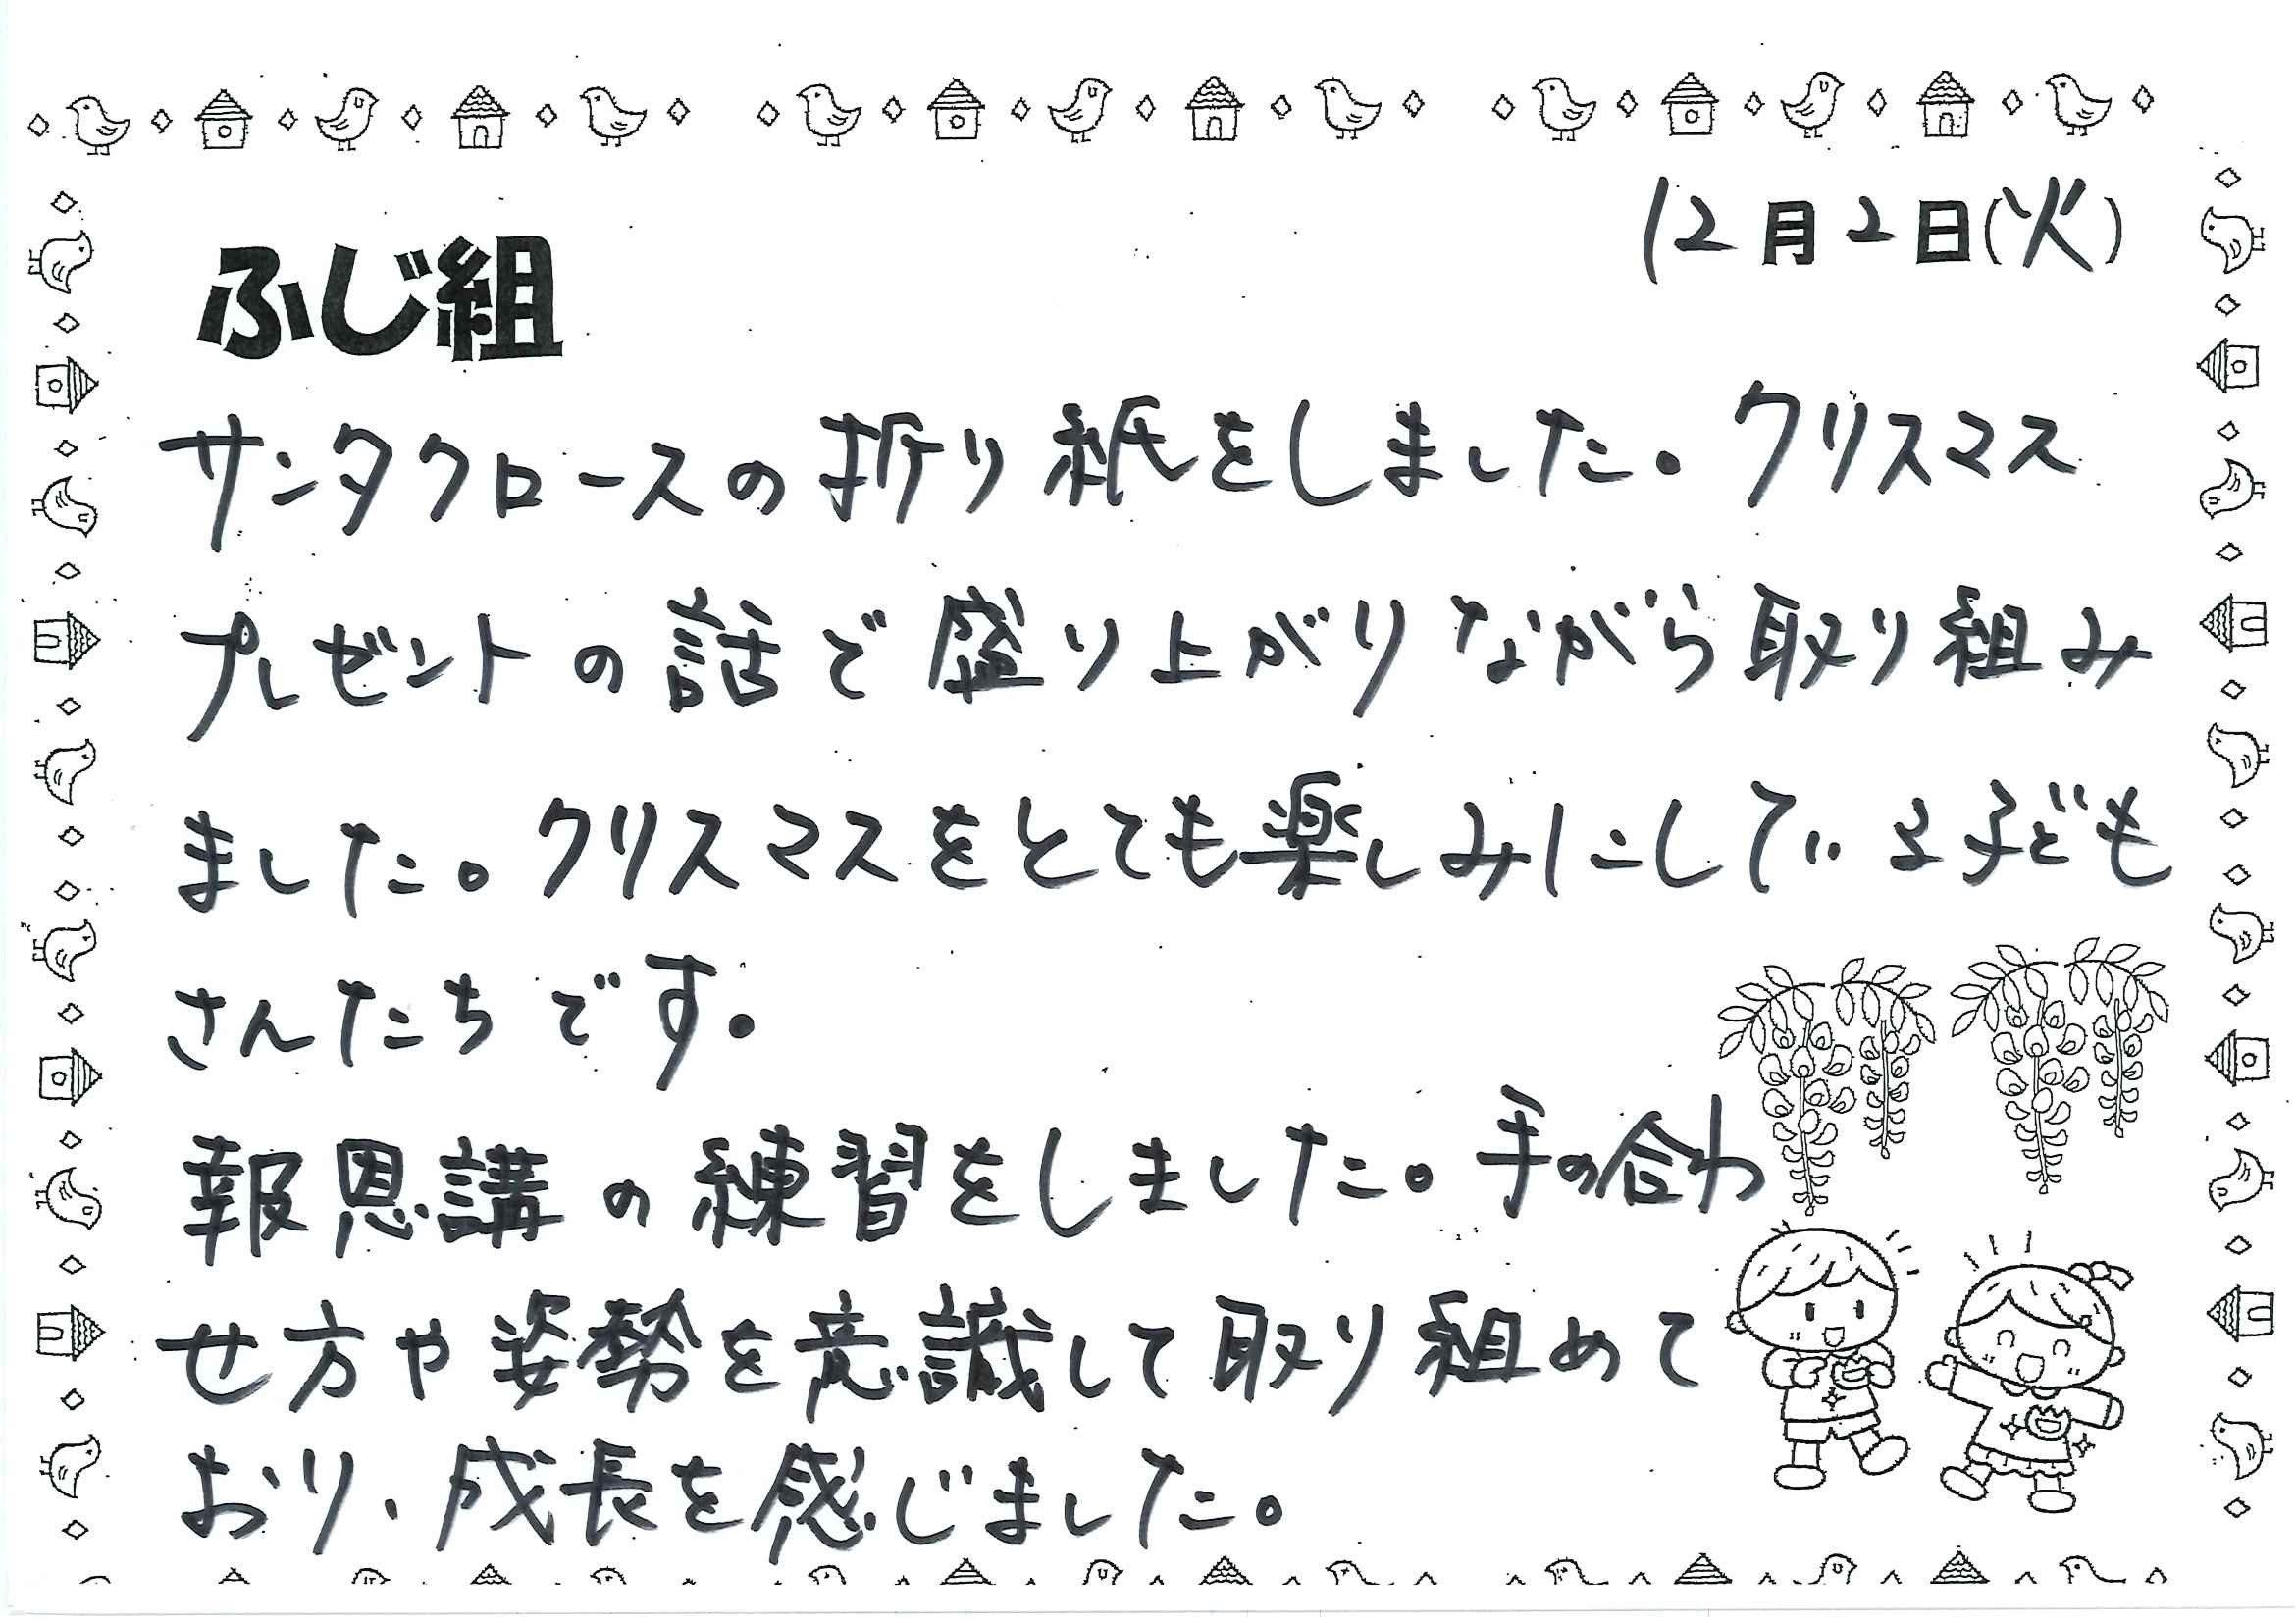 12月2日(火)
ふじ組
サンタクロースの折り紙をしました。クリスマス
プレゼントの話で盛り上がりながら取り組み
ました。クリスマスをとても楽しみにしている子ども
さんたちです。
報恩講の練習をしました。手の合わ
せ方や姿勢を意識して取り組めて
おり、成長を感じました。